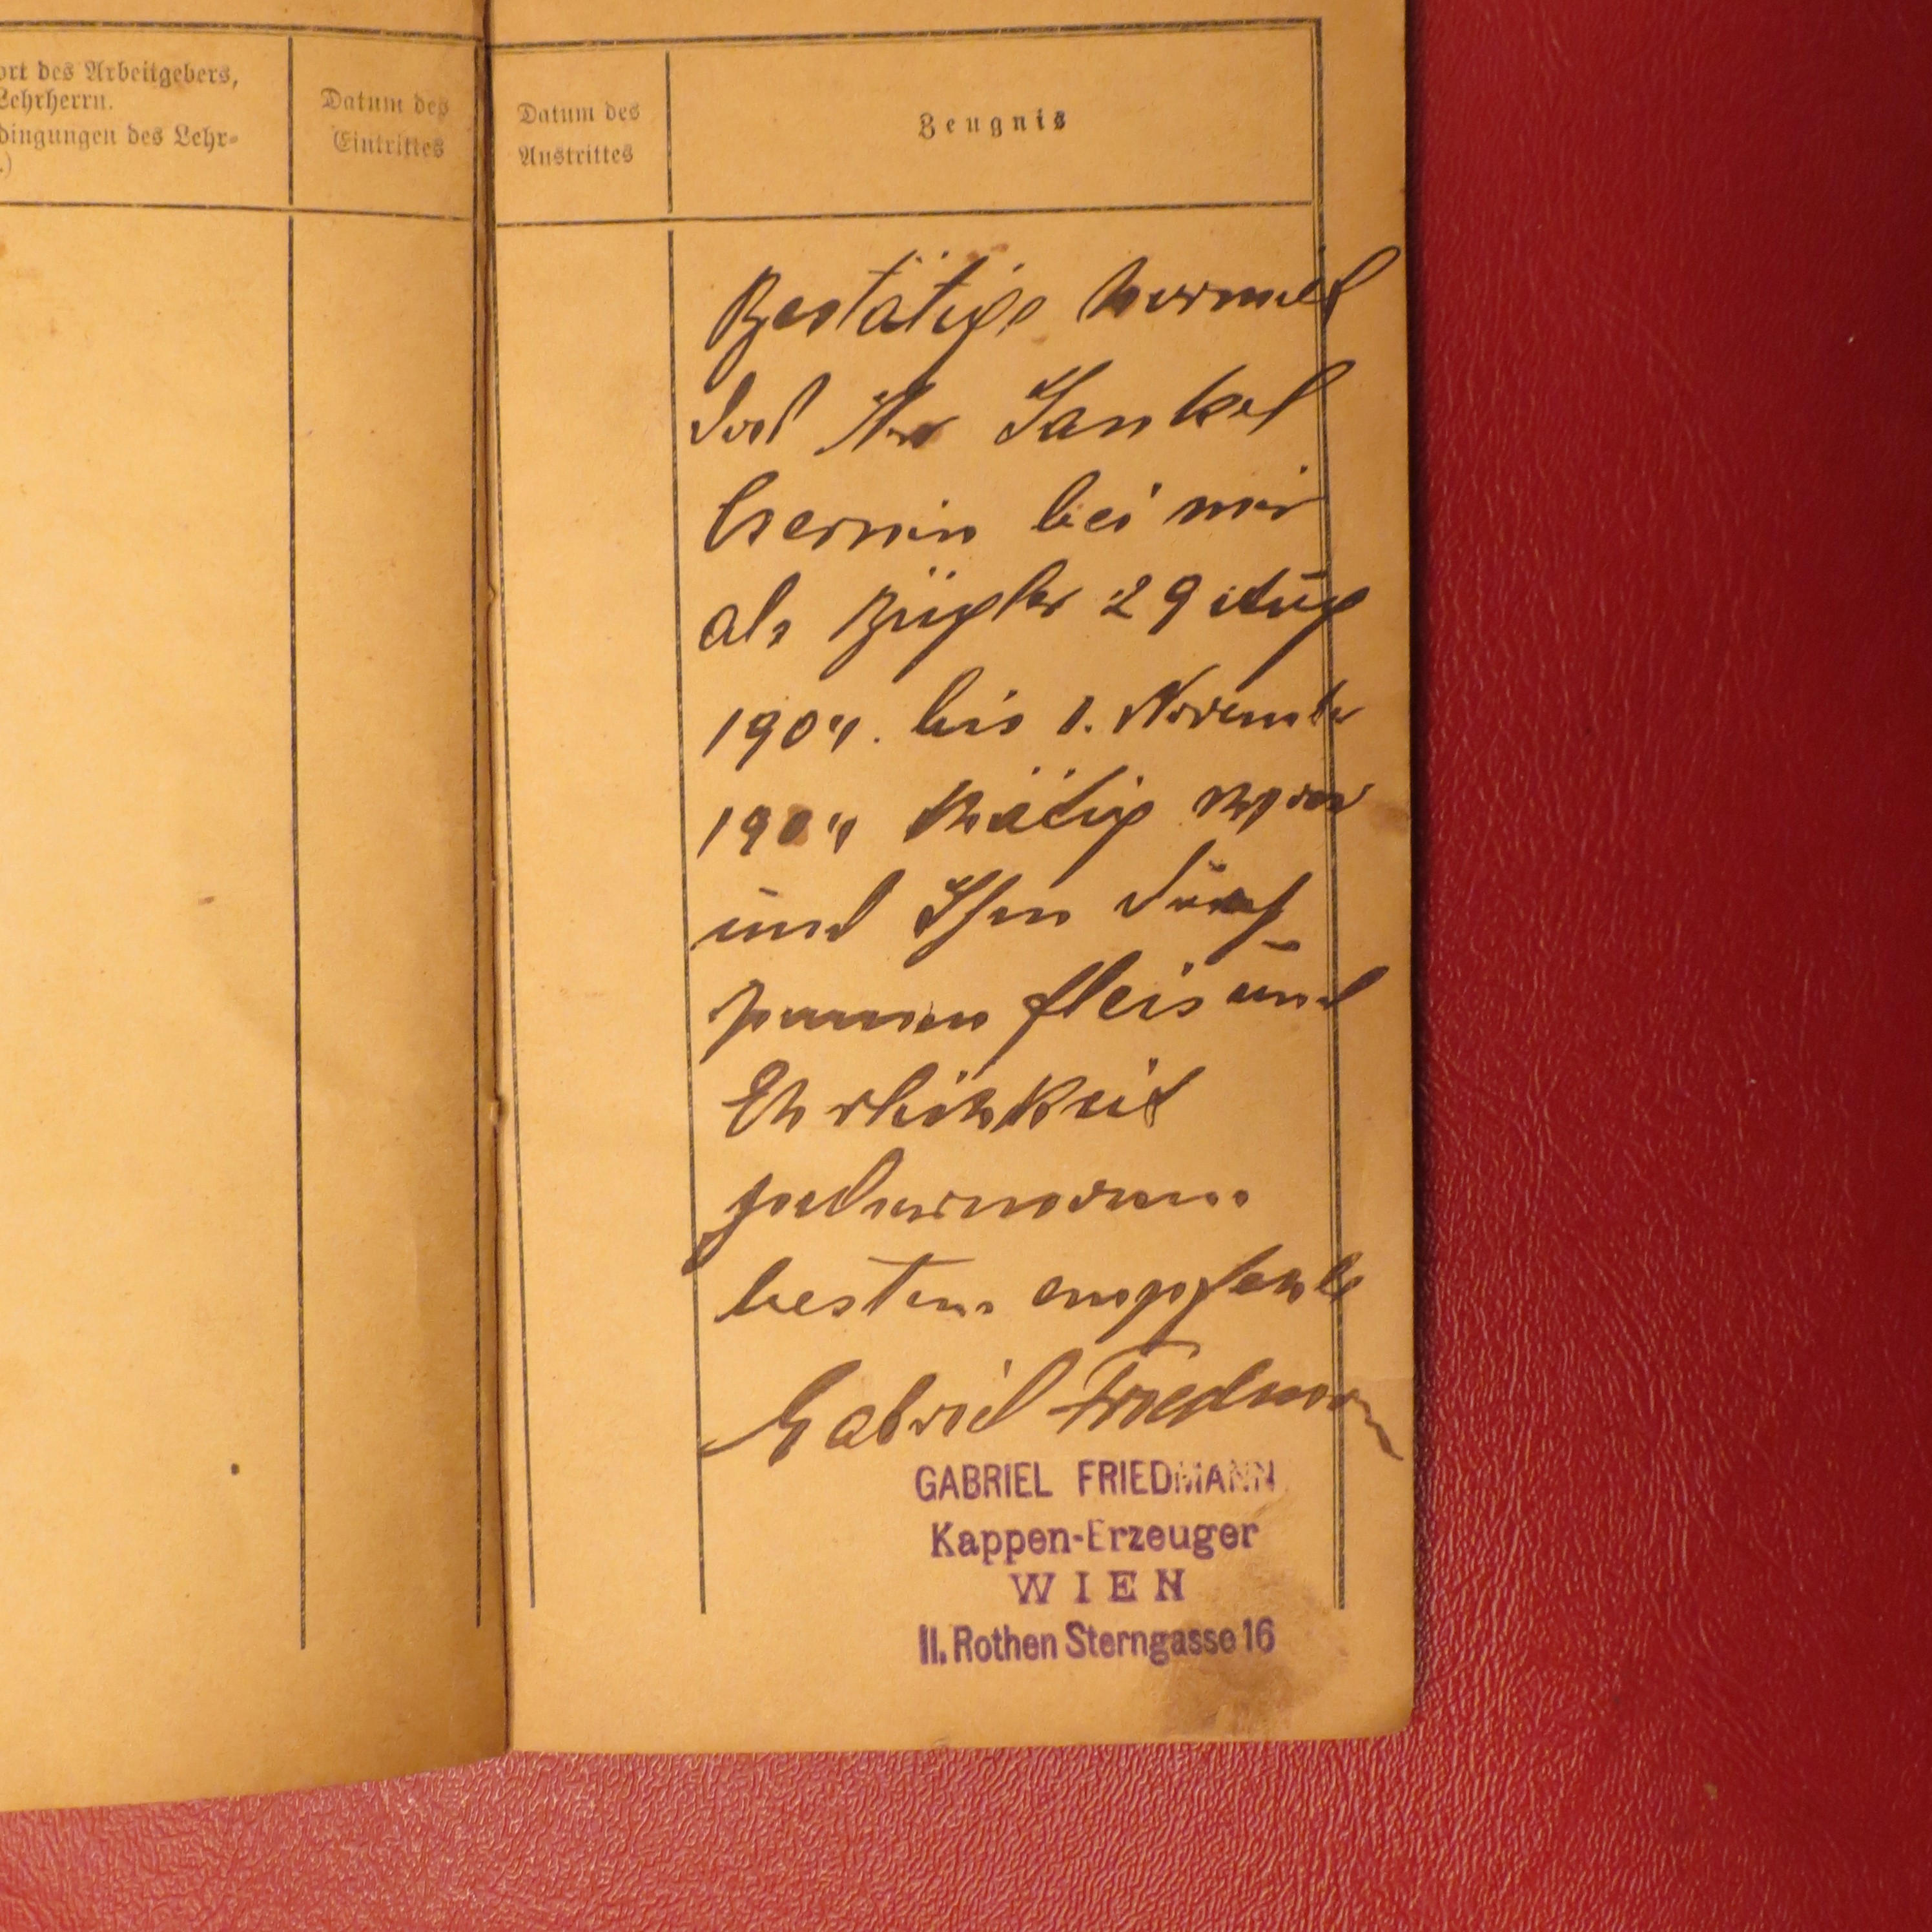 ort des Arbeitgebers,
Lehrherrn.
dingungen des Lehr-
.)
Datum des
Eintrittes
Datum des
Austrittes
Zeugnis
Bestätige hiermit
das Her Jankel
Czernin bei mir
als Bügler 29 Aug
1904. bis 1. November
1904 thätig war
und Ihm durch
fleis und
Ehrlichkeit
bestens empfehle
Gabriel Friedmann
GABRIEL FRIEDMANN
Kappen-Erzeuger
WIEN
II. Rothen Sterngasse 16